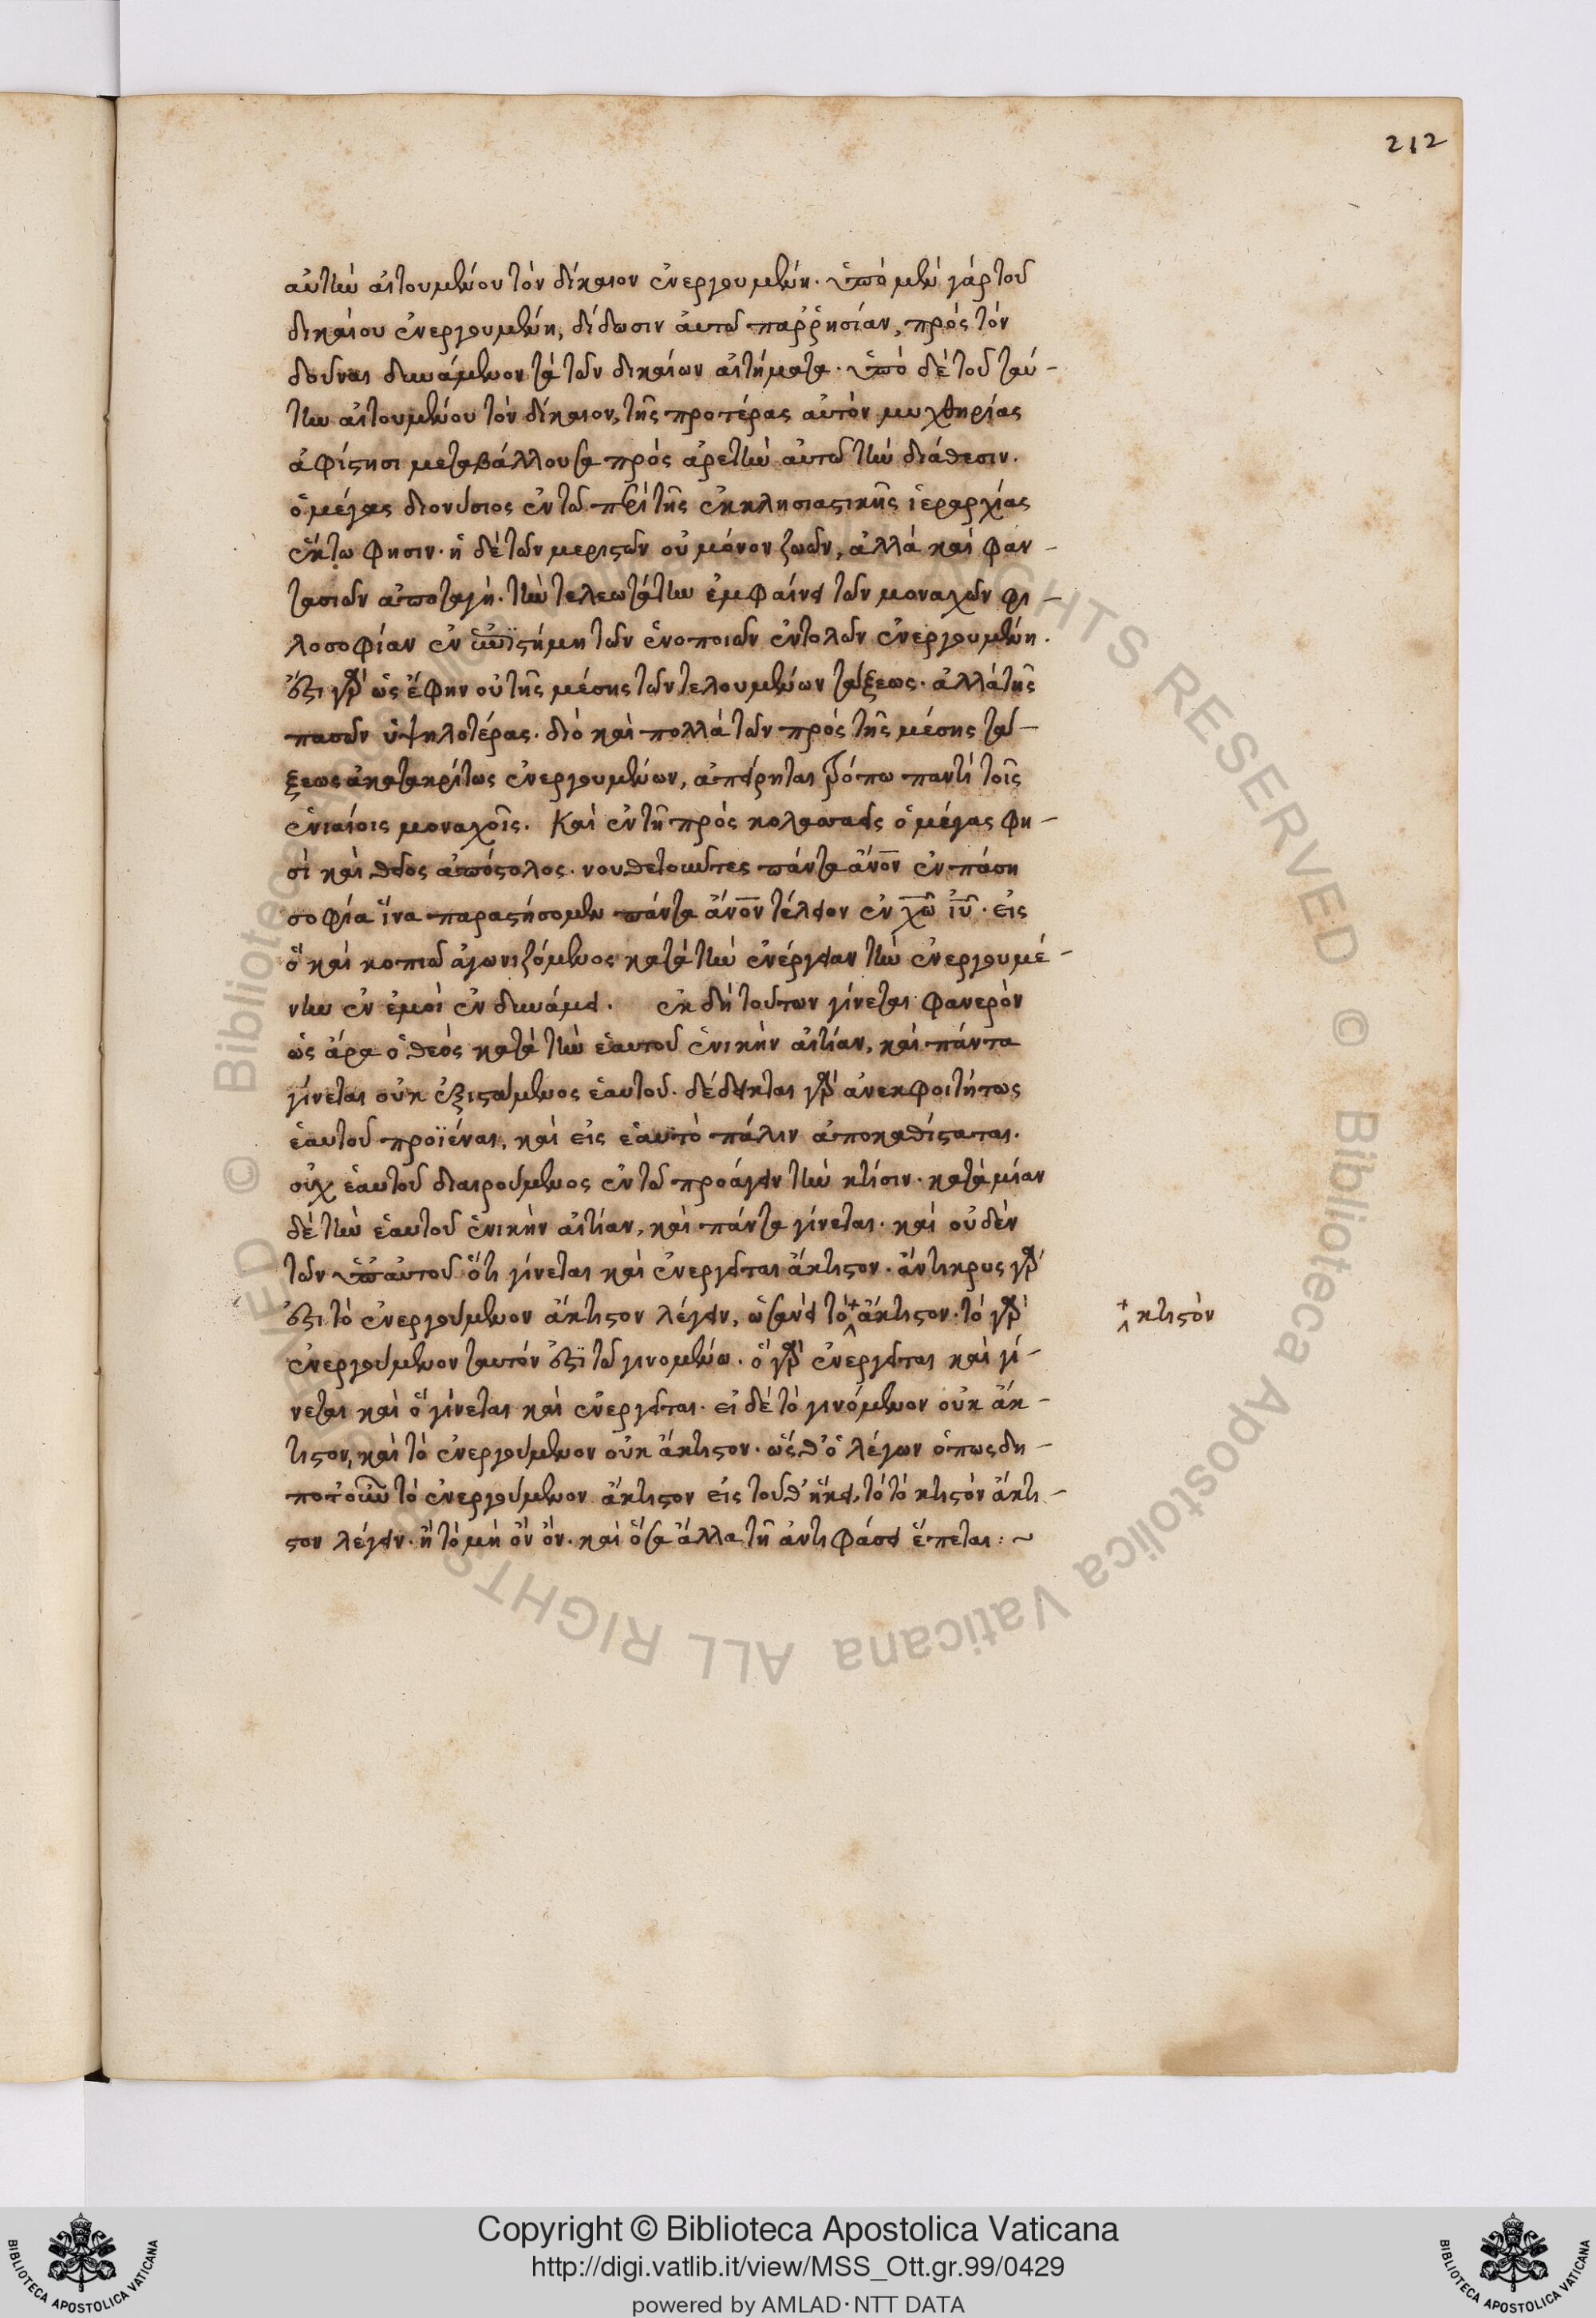 212
αὐτὴν αἰτουμένου τὸν δίκαιον ἐνεργουμένη. ὑπὸ μὲν γάρ τοῦ
δικαίου ἐνεργουμένη, δίδωσιν ἀυτῶ παῤῥησίαν, πρὸς τὸν
δοῦναι δυνάμενον τὰ τῶν δικαίων αἰτήματα. ὑπὸ δὲ τοῦ ταύ-
την αἰτουμένου τὸν δίκαιον, τῆς προτέρας αὐτὸν μυχθηρίας
ἀφίστησι μεταβάλλουσα πρὸς ἀρετὴν αὐτῶ τὴν διάθεσιν.
ὁ μέγας διονύσιος ἐν τῶ περὶ τῆς ἐκκλησιαστικῆς ἱεραρχίας
ἕκτω φησιν. ἡ δὲ τῶν μεριστῶν οὐ μόνον ζωῶν, ἀλλὰ καὶ φαν-
τασιῶν ἀποταγὴ. τὴν τελεωτάτην ἐμφαίνει τῶν μοναχῶν φι-
λοσοφίαν ἐν ἐπϊστήμη τῶν ἑνοποιῶν ἐντολῶν ἐνεργουμένη.
ἔστι γὰρ ὡς ἔφην οὐ τῆς μέσης τῶν τελουμένων τάξεως. ἀλλὰ τῆς
πασῶν ὑψηλοτέρας. διὸ καὶ πολλὰ τῶν πρὸς τῆς μέσης τά-
ξεως ἀκατακρίτως ἐνεργουμένων, ἀπείρηται τρόπω παντὶ τοῖς
ἑνιαίοις μοναχοῖς. Καὶ ἐν τῆ πρὸς κολασαεῖς ὁ μέγας φη-
σὶ καὶ θεῖος ἀπόστολος. νουθετοῦντες πάντα ἄνον ἐν πάση
σοφία ἵνα παραστήσομεν πάντα ἄνον τέλειον ἐν χῶ ἰῦ. εἰς
ὃ καὶ κοπιῶ ἀγωνιζόμενος κατὰ τὴν ἐνέργειαν τὴν ἐνεργουμέ-
νην ἐν ἐμοὶ ἐν δυνάμει. ἐκ δὴ τούτων γίνεται φανερὸν
ὡς ἄρα ὁ θεὸς κατὰ τὴν ἑαυτοῦ ἑνικὴν αἰτίαν, καὶ πάντα
γίνεται οὐκ ἐξιστάμενος ἑαυτοῦ. δέδεικται γὰρ ἀνεκφοιτήτως
ἑαυτοῦ προϊέναι, καὶ εἰς ἑαυτὸ πάλιν ἀποκαθίσταται.
οὐχ ἑαυτοῦ διαιρούμενος ἐν τῶ προάγειν τὴν κτίσιν. κατὰ μίαν
δὲ τὴν ἑαυτοῦ ἑνικὴν αἰτίαν, καὶ πάντα γίνεται. καὶ οὐδὲν
τῶν ὑπ᾽ αὐτοῦ ὅτι γίνεται καὶ ἐνεργεῖται ἄκτιστον. ἄντικρυς γὰρ
ἔστι τὸ ἐνεργούμενον ἄκτιστον λέγειν, ὡσανεὶ τὸ + ἄκτιστον. τὸ γὰρ
+ κτιστὸν
ἐνεργούμενον ταυτόν ἐστϊ τῶ γινομένω. ὃ γὰρ ἐνεργεῖται καὶ γί-
νεται καὶ ὃ γίνεται καὶ ἐνεργεῖται. εἰ δὲ τὸ γινόμενον οὐκ ἄκ-
τιστον, καὶ τὸ ἐνεργούμενον οὐκ ἄκτιστον. ὥσθ᾽ ὁ λέγων ὁπωσδη-
ποτοῦν τὸ ἐνεργούμενον ἄκτιστον εἰς τοῦθ᾽ ἥκει, τὸ τὸ κτιστὸν ἄκτι-
στον λέγειν. ἢ τὸ μὴ ὂν ὄν. καὶ ὅσα ἄλλα τῆ ἀντιφάσει ἕπεται: ~
Copyright © Biblioteca Apostolica Vaticana
http://digi.vatlib.it/view/MSS_Ott.gr.99/0429
powered by AMLAD·NTT DATA